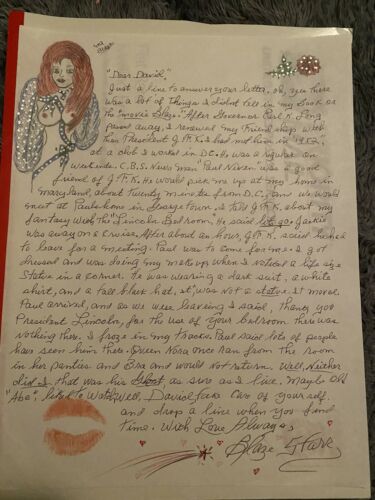 "Dear David,"
Just a line to answer your letter. oh, yes there
was a lot of things I didnt tell in my book or
the "movie Blaze." After Governor Earl K. Long
passed away, I renewed my Friendship with
then President J.F.K. I had met him in 1952,
at a club I worked in D.C. He was a regular on
weekends. C.B.S. News man "Paul Niven" was a good
friend of J.F.K. He would pick me up at my home in
Maryland, about Twenty minutes from D.C., and we would
meet at Pauls home in Georgetown. I told J.F.K. about my
fantasy with the "Lincoln Bedroom," He said lets go. Jackie
was away on a cruise. After about an hour, J.F.K. said he had
to leave for a meeting. Paul was to come for me. I got
dressed and was doing my makeup when I noticed a life size
Statue in a corner. He was wearing a dark suit, a white
shirt, and a tall black hat, it was not a statue. It moved.
Paul arrived, and as we were leaving I said, Thank you
President Lincoln, for the use of your bedroom there was
nothing there. I froze in my tracks. Paul said lots of people
have seen him there. Queen Nora once ran from the room
in her panties and Bra and would not return. Well, Neither
did I. that was his Ghost, as sure as I live. Maybe Old
"Abe", liked to Watch. Well, David take care of yourself.
and drop a line when you find
time. With Love Always,
Blaze Starr